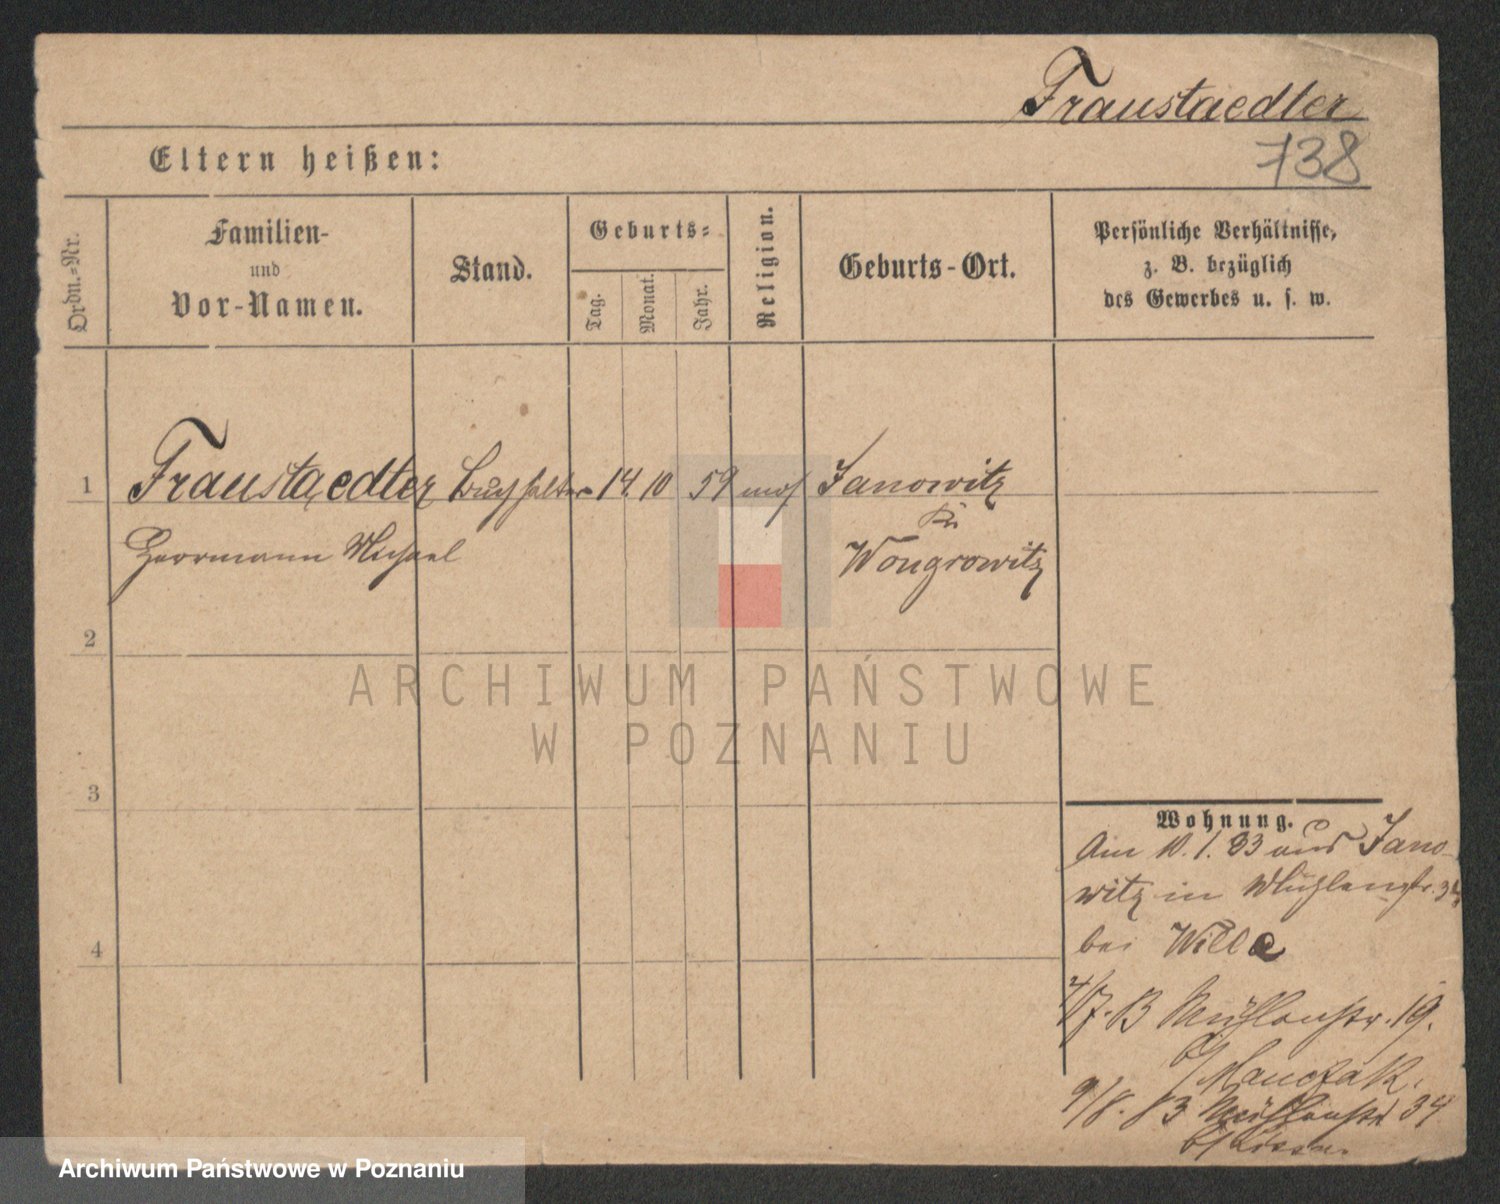 Fraustaedter
738
Eltern heißen:
Ordn.-Nr.
Familien-
und
Vor-Namen.
Stand.
Geburts-
Tag.
Monat.
Jahr.
Religion.
Geburts-Ort.
Persönliche Verhältnisse,
z. B. bezüglich
des Gewerbes u. s. w.
1 Fraustaedter Buchhalter 14. 10 59 mos Janowitz
Kr
Herrmann Michael Wongrowitz
2
3
4
Wohnung.
Am 10. 1. 83 aus Jano-
witz in Mühlenstr. 34
bei Wille
4/7. 83 Mühlenstr. 19.
b/ Manczak.
9/8. 83 Mühlenstr 34
b/
ARCHIWUM PAŃSTWOWE
W POZNANIU
Archiwum Państwowe w Poznaniu